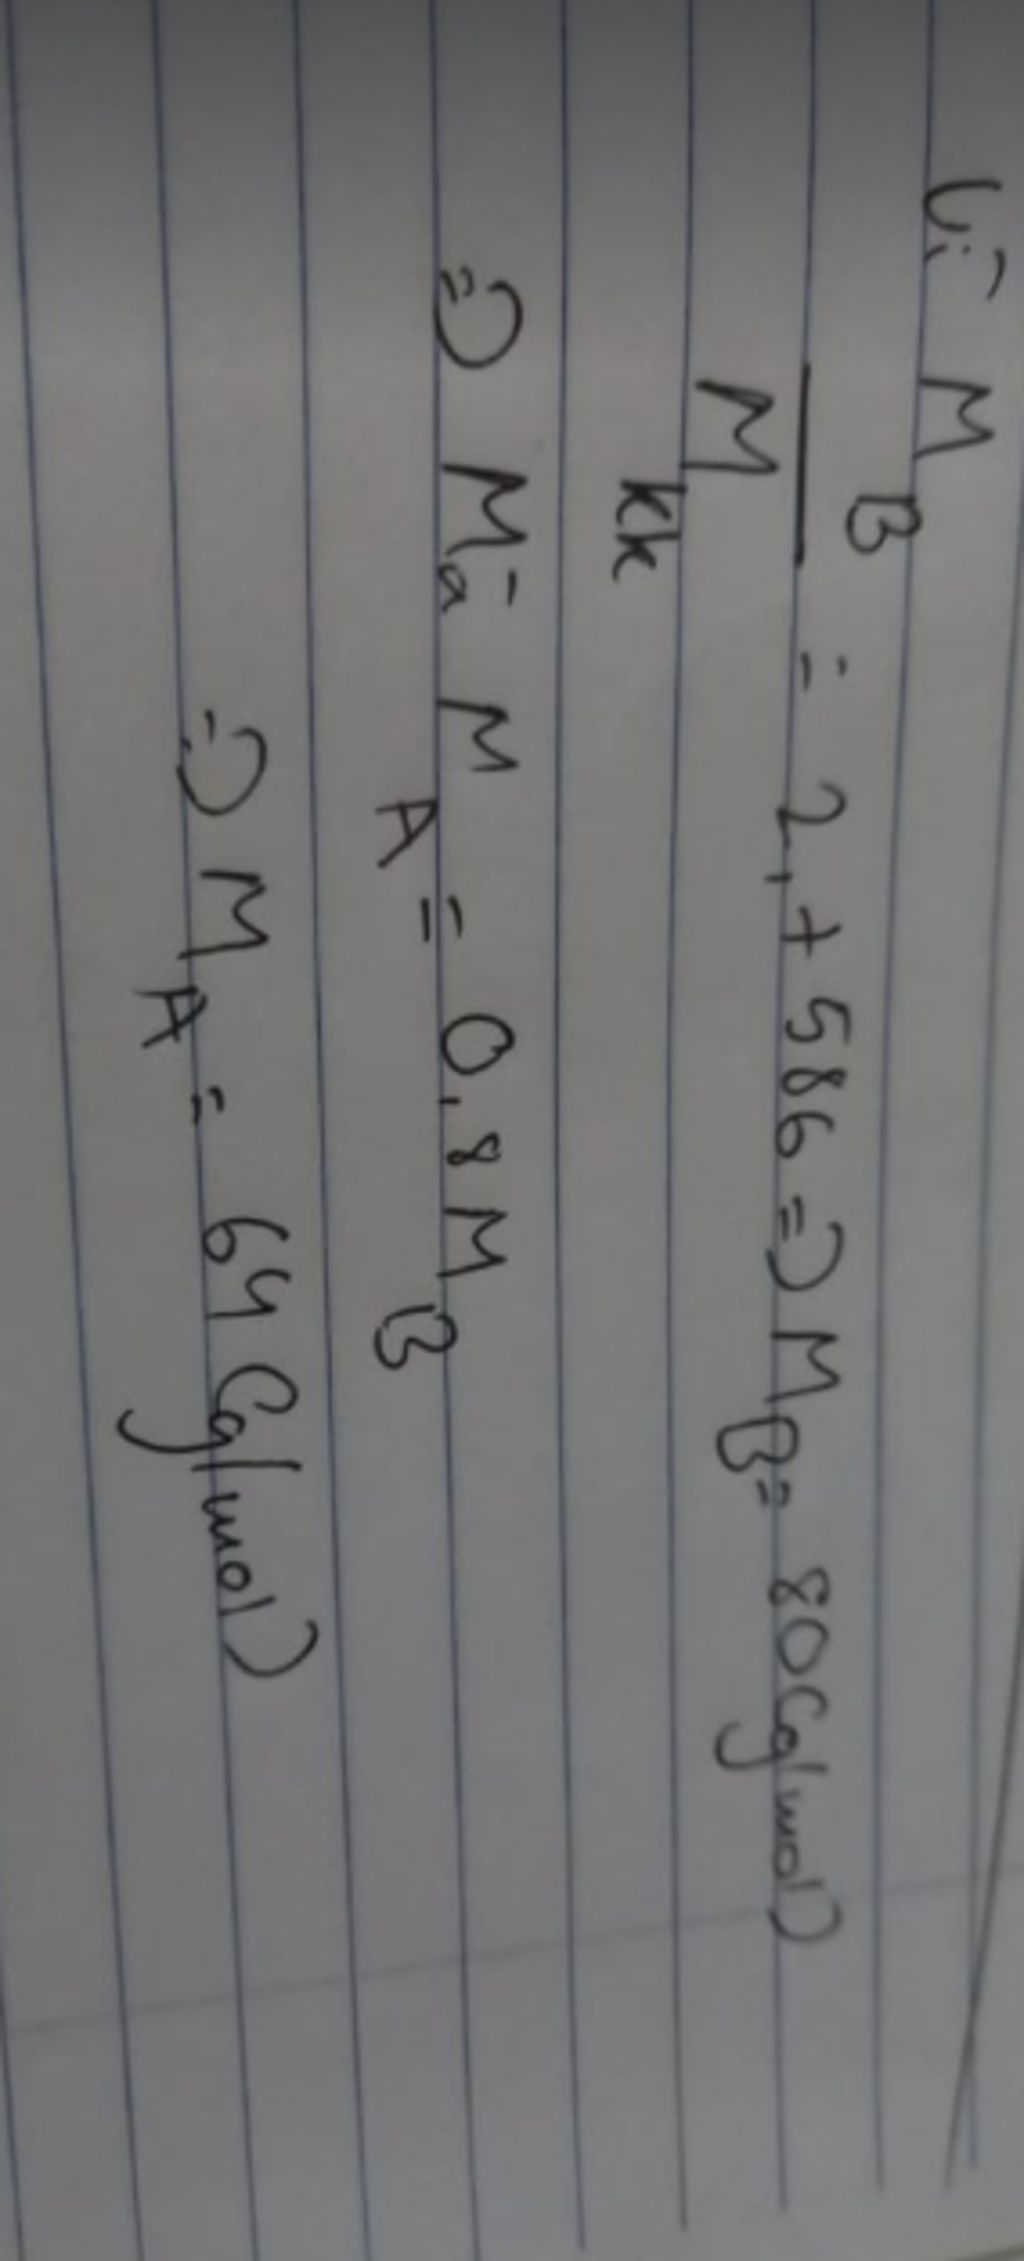 Vì M_B / M_kk = 2,7586 => M_B = 80 (g/mol)
=> Mà M_A = 0,8 M_B
=> M_A = 64 (g/mol)